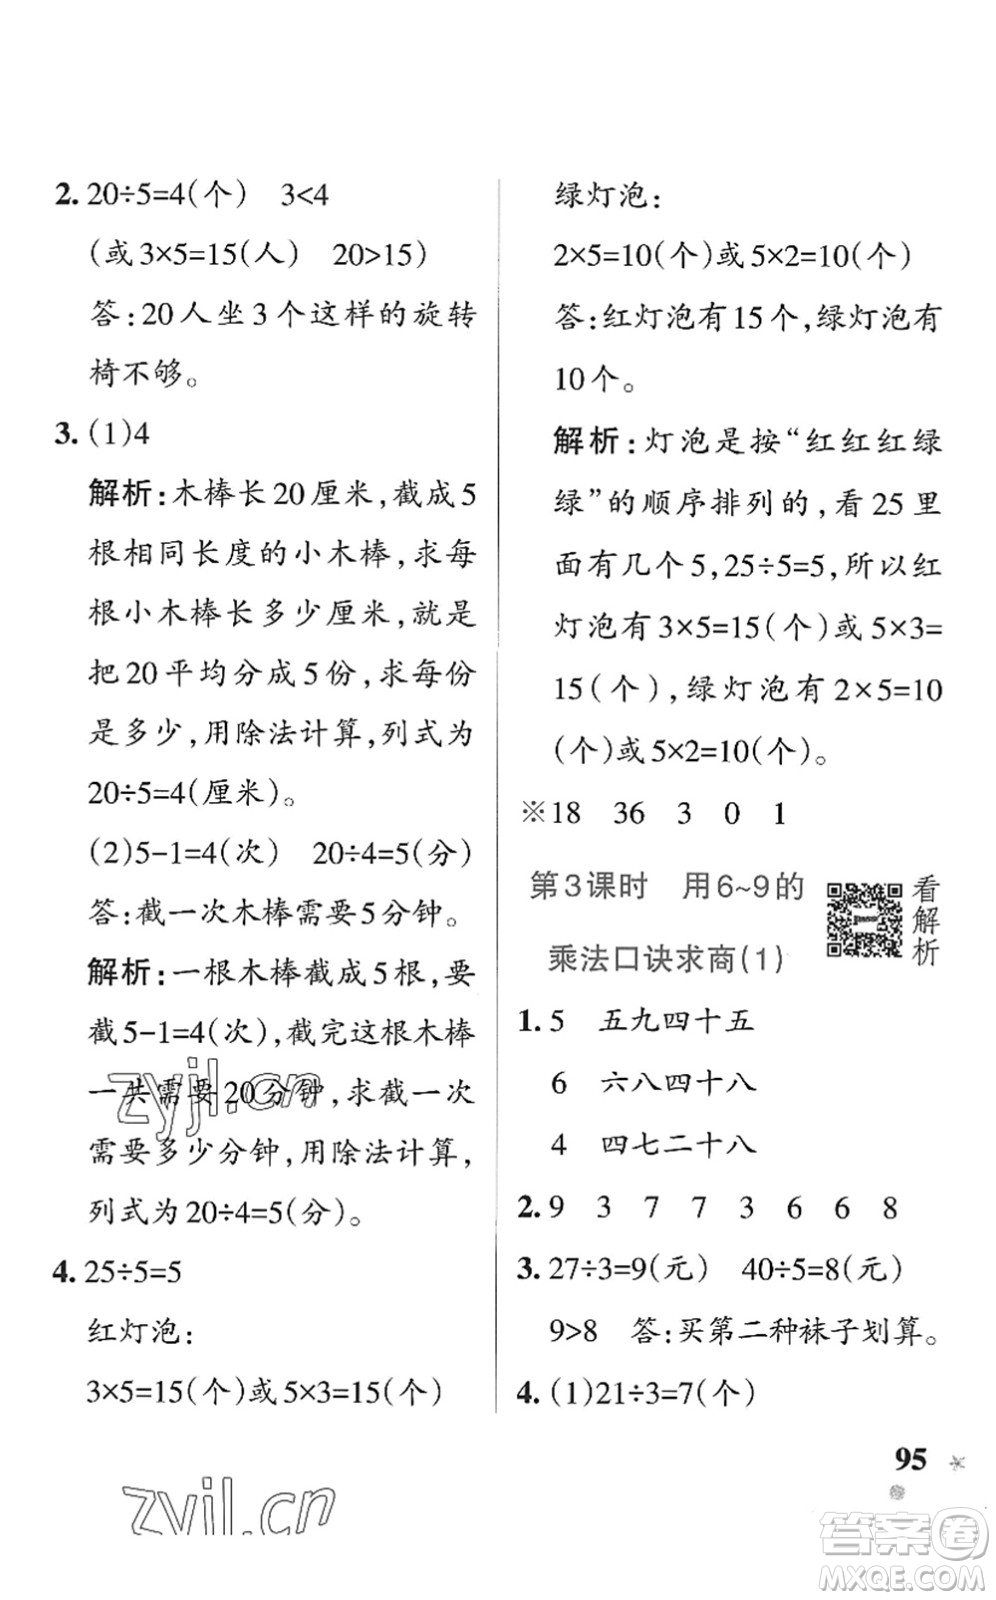 2. 20÷5=4(个) 3<4
(或3×5=15(人) 20>15)
答:20人坐3个这样的旋转
椅不够。
3. (1)4
解析:木棒长20厘米,截成5
根相同长度的小木棒,求每
根小木棒长多少厘米,就是
把20平均分成5份,求每份
是多少,用除法计算,列式为
20÷5=4(厘米)。
(2)5-1=4(次) 20÷4=5(分)
答:截一次木棒需要5分钟。
解析:一根木棒截成5根,要
截5-1=4(次),截完这根木棒
一共需要20分钟,求截一次
需要多少分钟,用除法计算,
列式为20÷4=5(分)。
4. 25÷5=5
红灯泡:
3×5=15(个)或5×3=15(个)
绿灯泡:
2×5=10(个)或5×2=10(个)
答:红灯泡有15个,绿灯泡有
10个。
解析:灯泡是按“红红红绿
绿”的顺序排列的,看25里
面有几个5,25÷5=5,所以红
灯泡有3×5=15(个)或5×3=
15(个),绿灯泡有2×5=10
(个)或5×2=10(个)。
※18 36 3 0 1
第3课时 用6~9的
乘法口诀求商(1)
看解析
1. 5 五九四十五
6 六八四十八
4 四七二十八
2. 9 3 7 7 3 6 6 8
3. 27÷3=9(元) 40÷5=8(元)
9>8 答:买第二种袜子划算。
4. (1)21÷3=7(个)
95
zyjl.cn
zyjl.cn
答案圈
MXQE.COM